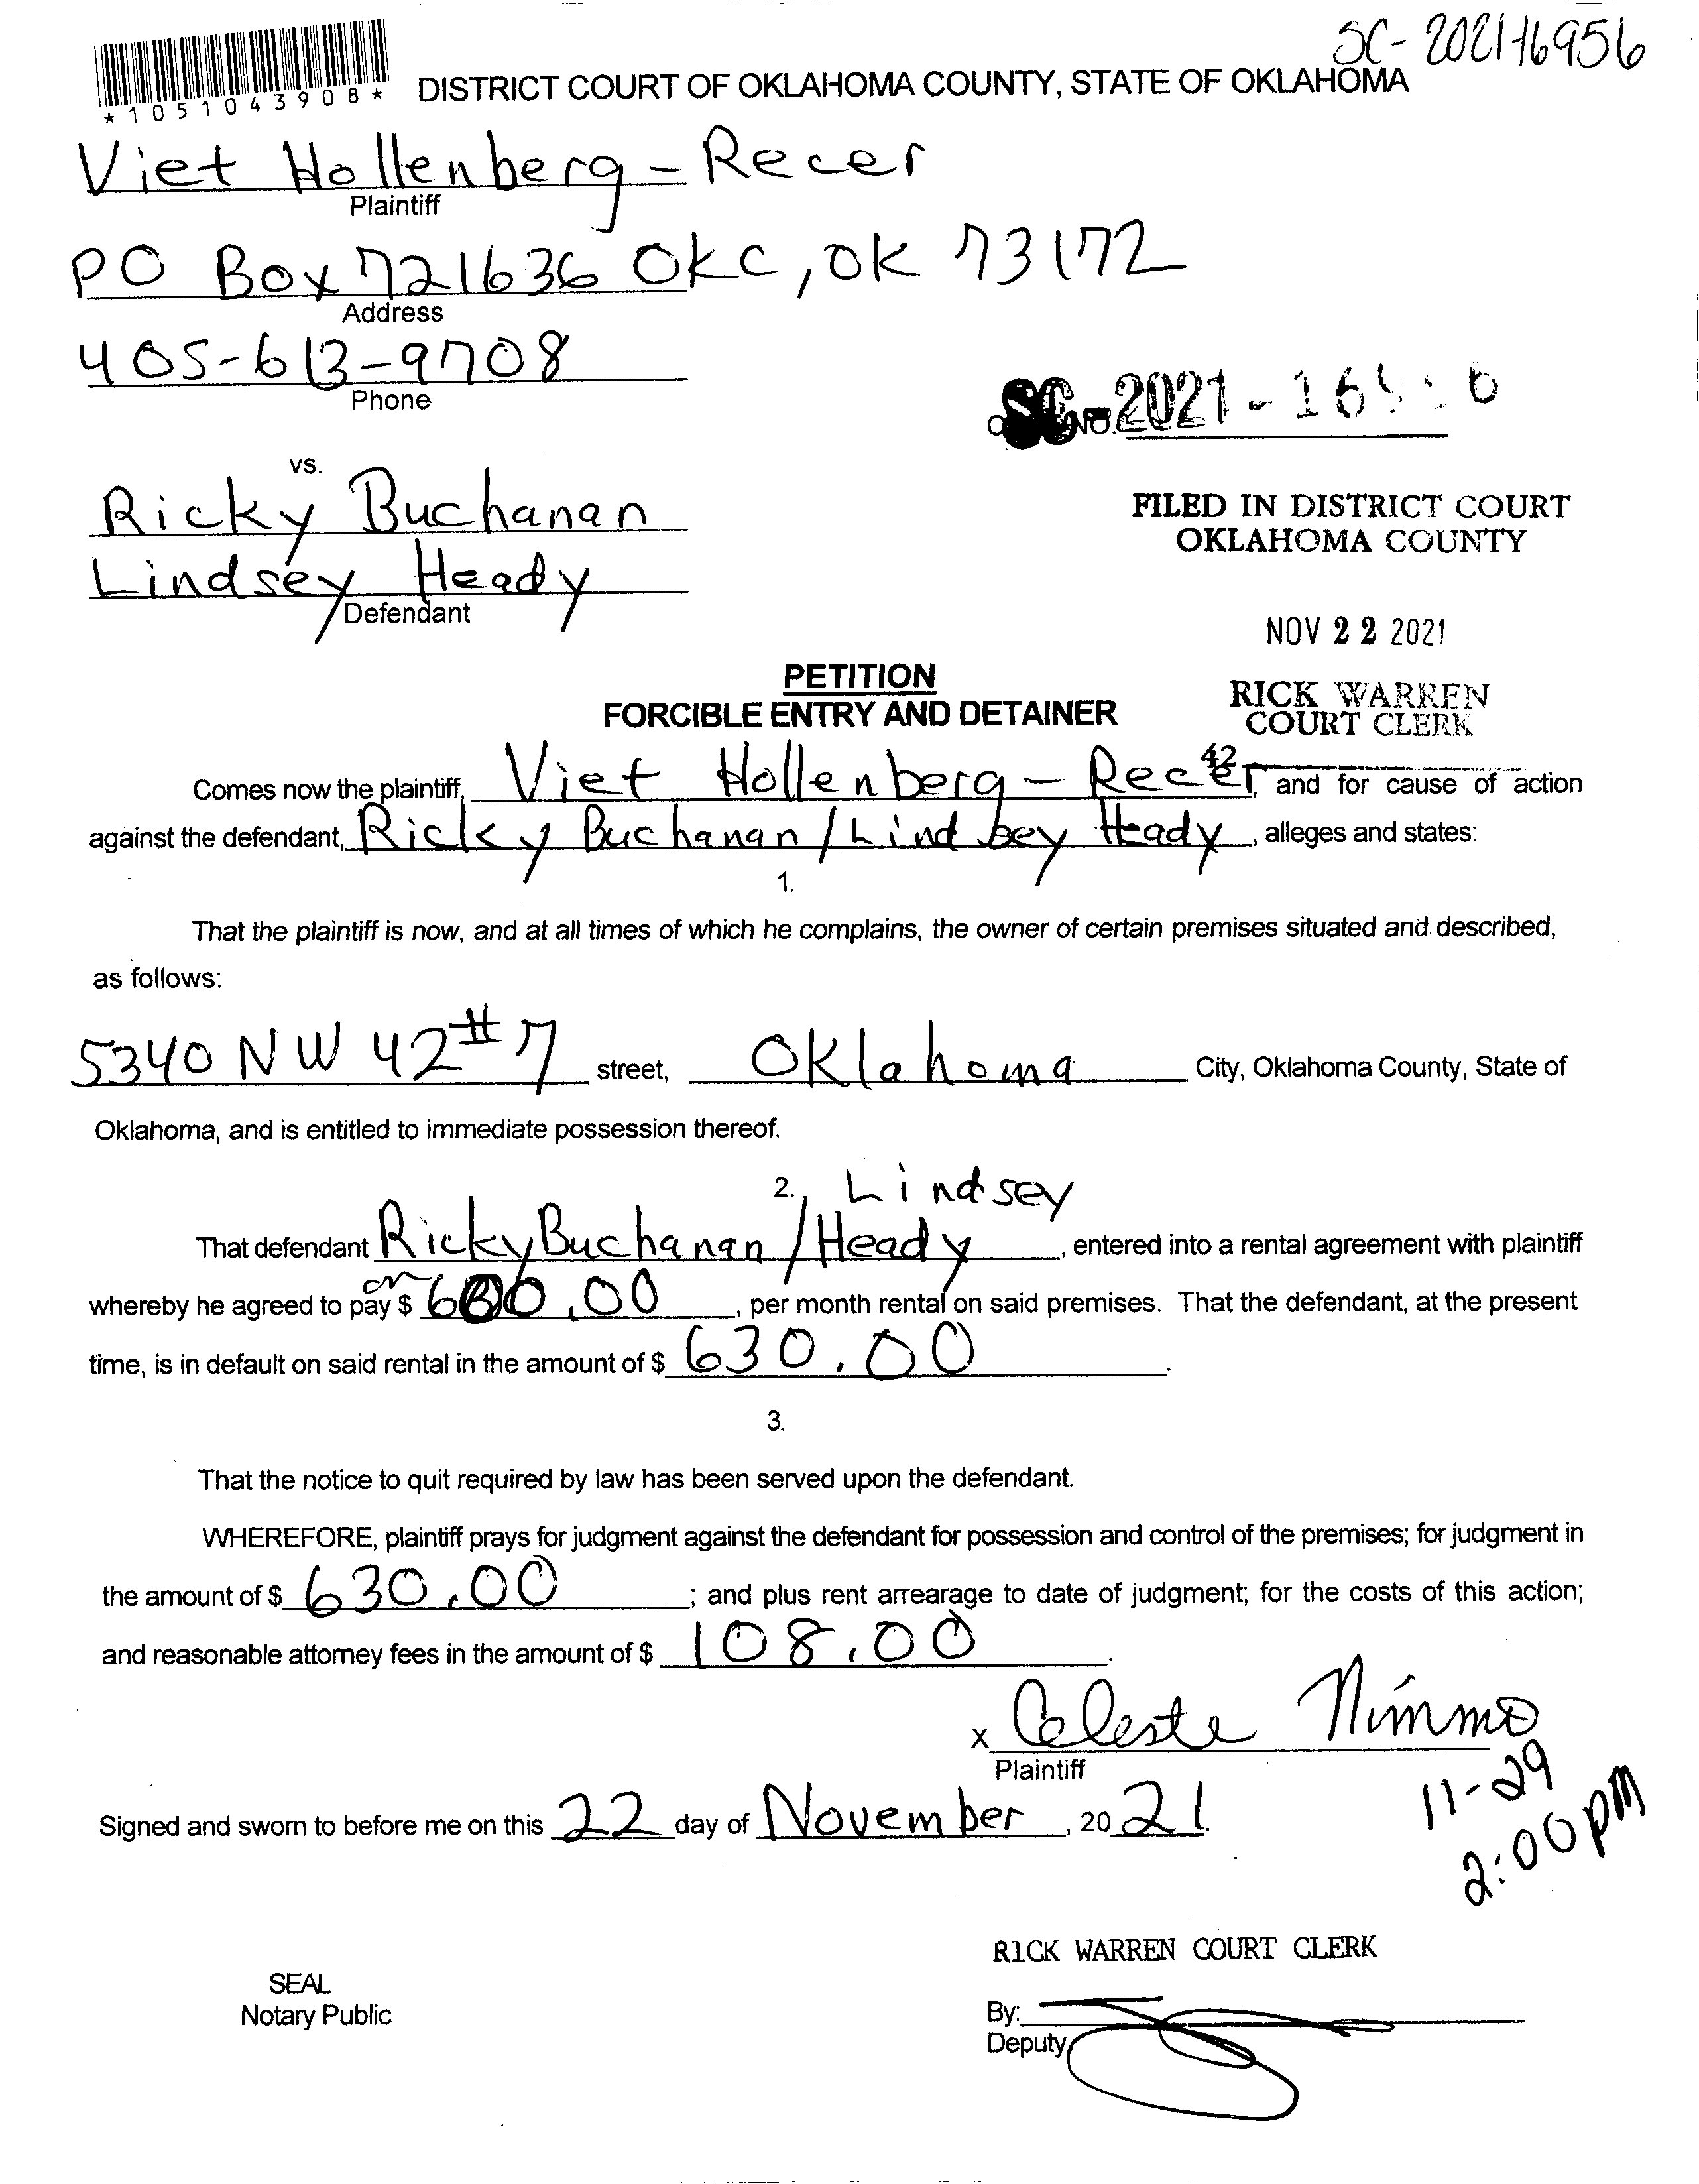 SC-2021-16956
*1051043908*
DISTRICT COURT OF OKLAHOMA COUNTY, STATE OF OKLAHOMA
Viet Hollenberg-Recer
Plaintiff
PO Box 721636 OKC, OK 73172
Address
405-613-9708
Phone
SC-2021-
NO.
vs.
Ricky Buchanan
Lindsey Heady
Defendant
FILED IN DISTRICT COURT
OKLAHOMA COUNTY
NOV 22 2021
RICK WARREN
COURT CLERK
42
PETITION
FORCIBLE ENTRY AND DETAINER
Comes now the plaintiff, Viet Hollenberg-Recer, and for cause of action
against the defendant, Ricky Buchanan/Lindsey Heady, alleges and states:
1.
That the plaintiff is now, and at all times of which he complains, the owner of certain premises situated and described,
as follows:
5340 NW 42 #7 street, Oklahoma City, Oklahoma County, State of
Oklahoma, and is entitled to immediate possession thereof.
2.
That defendant Ricky Buchanan/Lindsey Heady, entered into a rental agreement with plaintiff
whereby he agreed to pay $ 600.00, per month rental on said premises. That the defendant, at the present
time, is in default on said rental in the amount of $ 630.00.
3.
That the notice to quit required by law has been served upon the defendant.
WHEREFORE, plaintiff prays for judgment against the defendant for possession and control of the premises; for judgment in
the amount of $ 630.00; and plus rent arrearage to date of judgment; for the costs of this action;
and reasonable attorney fees in the amount of $ 108.00.
x Celeste Nimmo
Plaintiff
11-29
2:00pm
Signed and sworn to before me on this 22 day of November, 2021.
RICK WARREN COURT CLERK
SEAL
Notary Public
By:
Deputy